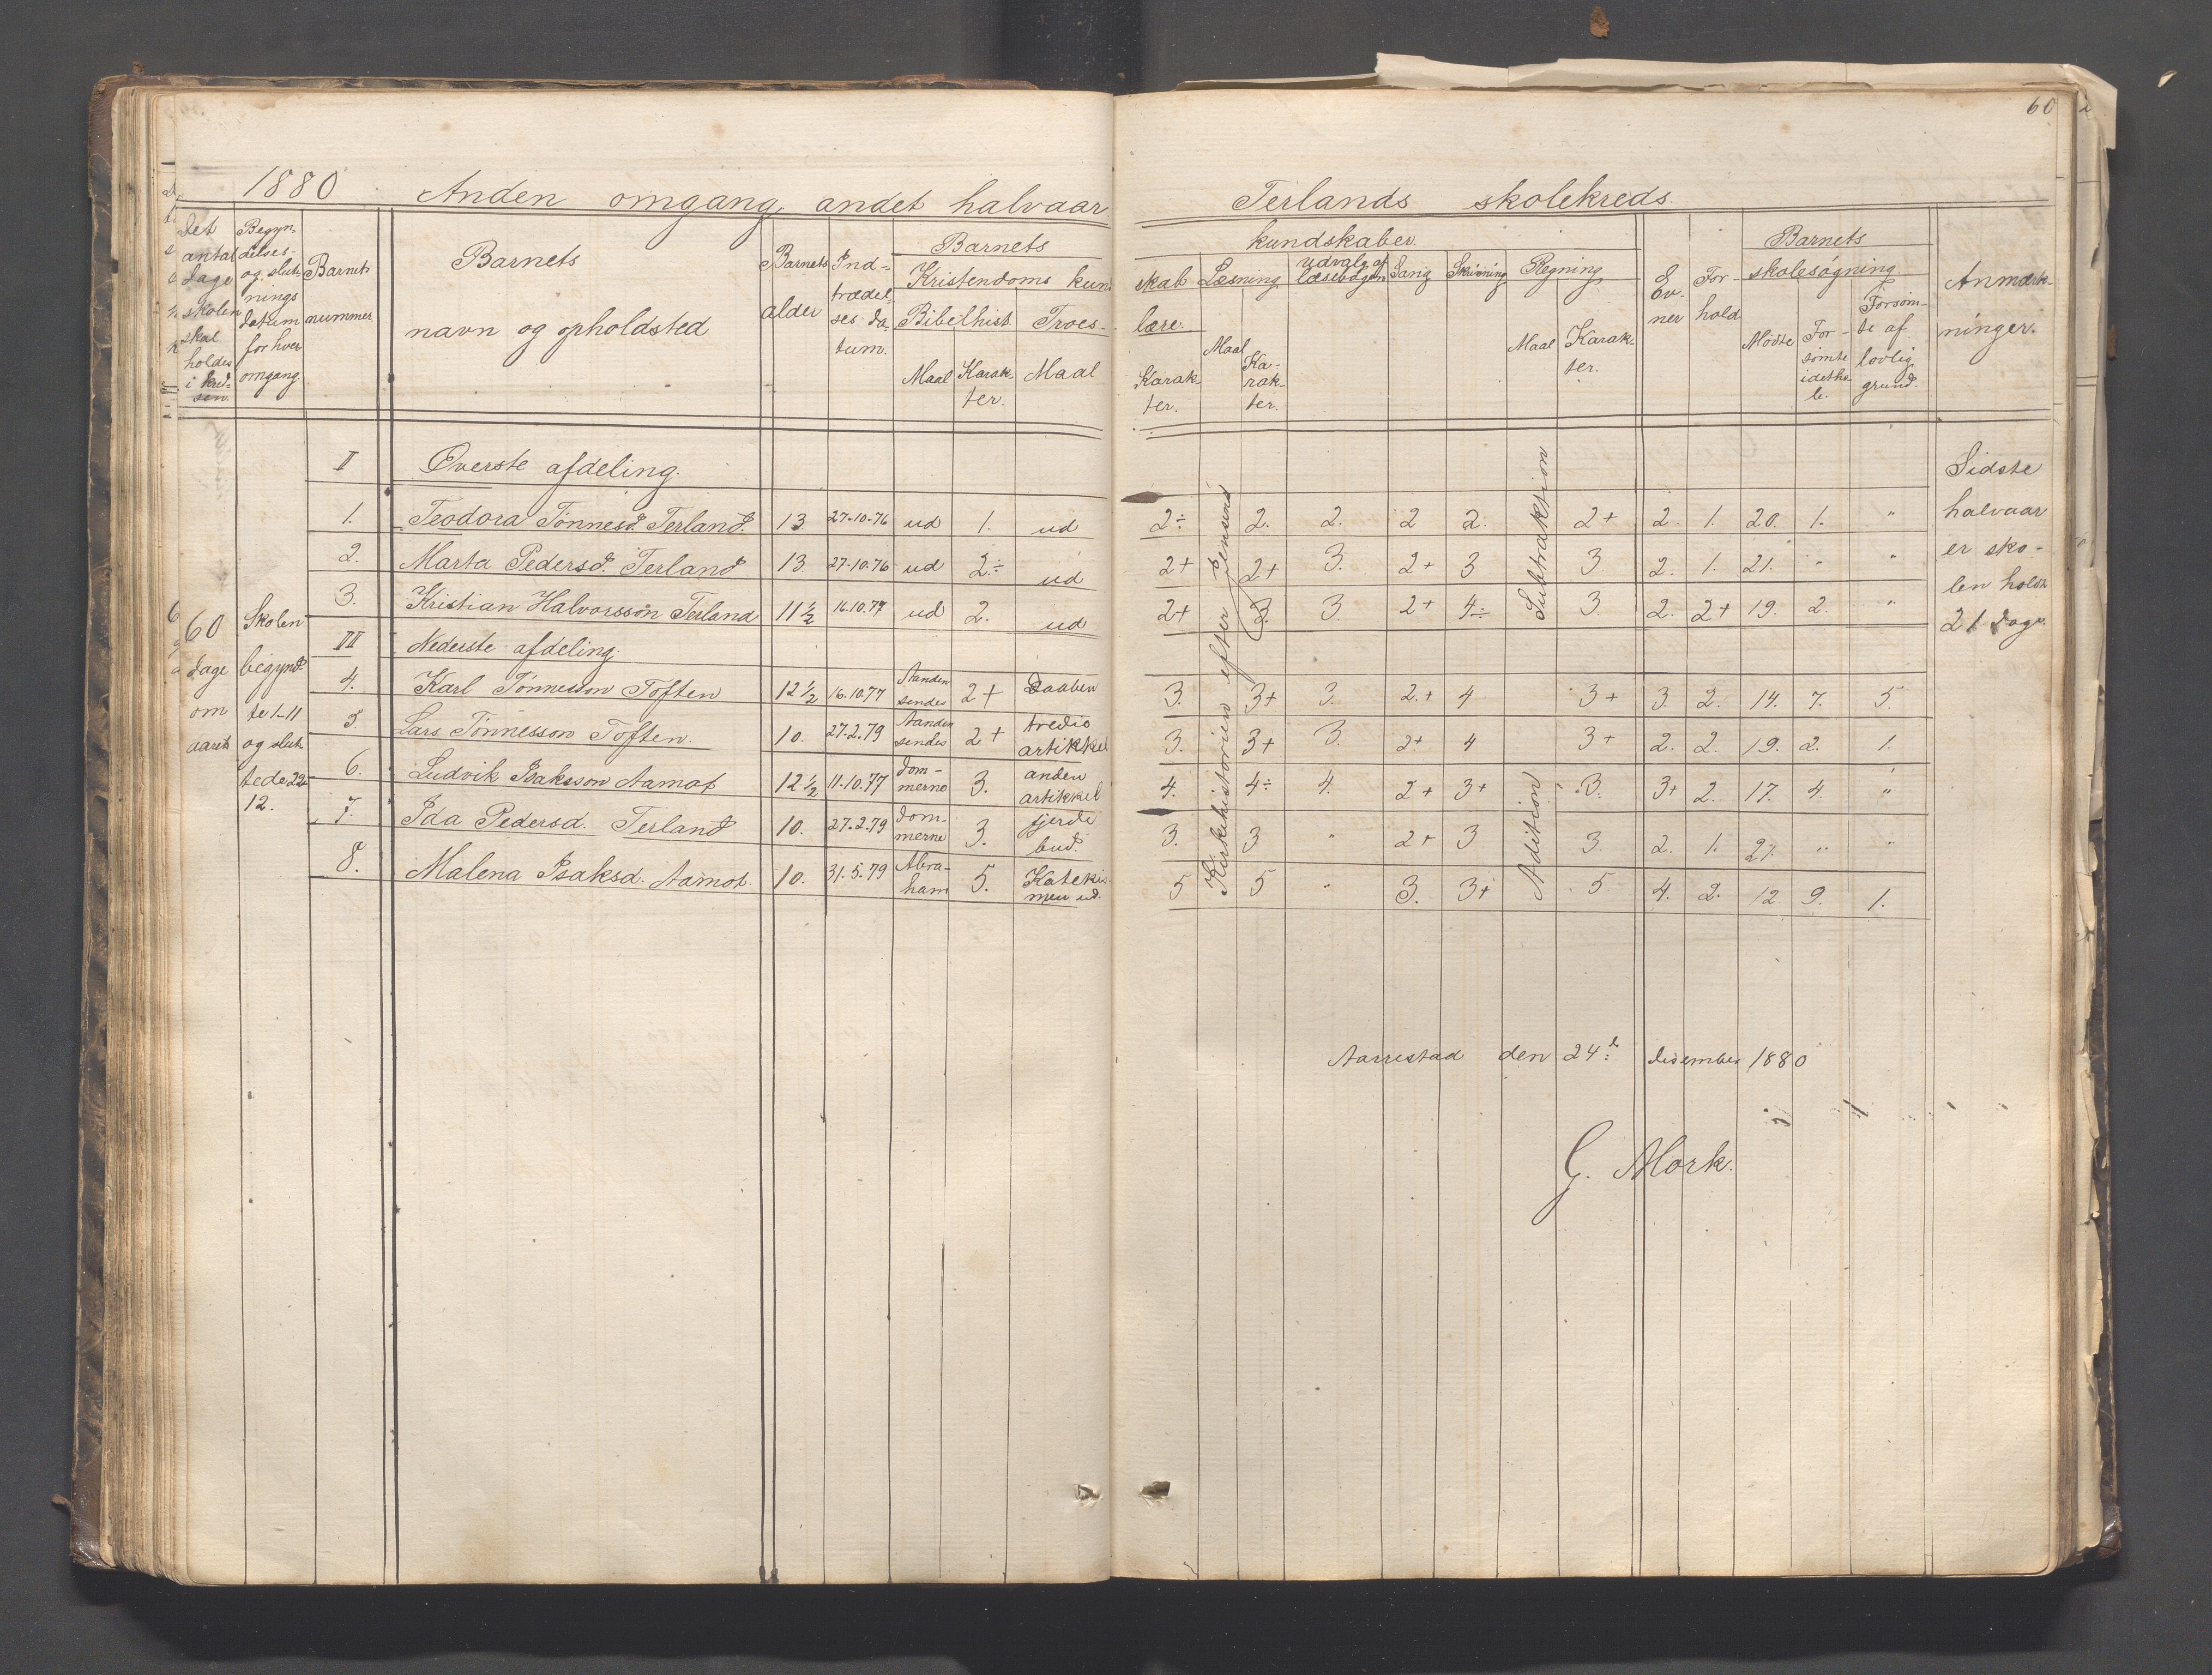 60
1880 Anden omgang, andet halvaar. Terlands skolekreds.
Det antal dage skolen skal holdes i kredsen.
Begyndelses- og slutnings datum for hver omgang.
Barnets nummer
Barnets navn og opholdsted
Barnets alder
Indtrædelses datum.
Barnets kundskaber.
Kristendoms kundskab
Bibelhist. Troeslære.
Maal Karakter. Maal Karakter.
Læsning Maal Karakter.
Udvalg af læsebogen
Sang
Skrivning
Regning Maal Karakter.
Evner
Forhold
Barnets skolesøgning
Mødte Forsømte idethele. Forsømte af lovlig grund.
Anmærkninger.
II Øverste afdeling.
1. Teodora Tønnesd. Terland. 13 27-10-76 ud 1. ud 2÷ 2. 2. 2 2. 2+ 2. 1. 20. 1. "
2. Marta Pedersd. Terland 13 27-10-76 ud 2÷ ud 2+ 2+ 3. 2+ 3 3 2. 1. 21. " "
3. Kristian Halvorsson Terland 11½ 16.10.77 ud 2. ud 2+ 3. 3. 2+ 4÷ 3. 2. 2+ 19. 2. "
III Nederste afdeling.
4. Karl Tønnesson Toften 12½ 16.10.77 Aanden sendes 2+ Daaben 3. 3+ 3. 2.+ 4 3+ 3. 2. 14. 7. 5.
5. Lars Tønnesson Toften. 10. 27.2.79 Aanden sendes 2+ tredie artikkel 3. 3+ 3. 2+ 4 3+ 2. 2. 19. 2. 1.
6. Ludvik Isaksson Aamot 12½ 11.10.77 Dommerne 3. anden artikkel 4. 4÷ 4. 2+ 3+ 3. 3+ 2. 17. 4. "
7. Ida Pedersd. Terland 10. 27.2.79 Dommerne 3. fjerde bud. 3. 3 " 2+ 3 3. 2. 1. 21. " "
8. Malena Isaksd. Aamot. 10. 31.5.79 Abraham 5. Katekismen ud. 5 5 " 3. 3+ 5 4. 2. 12 9. 1.
60 dage om aaret
Skolen begyndte 1-11 og sluttede 22-12.
Kirkehistorien efter Jensens
Subtraktion
Adition
Sidste
halvaar
er sko-
len holdt
21 dage.
Aarrestad den 24de desember 1880
G. Mork.